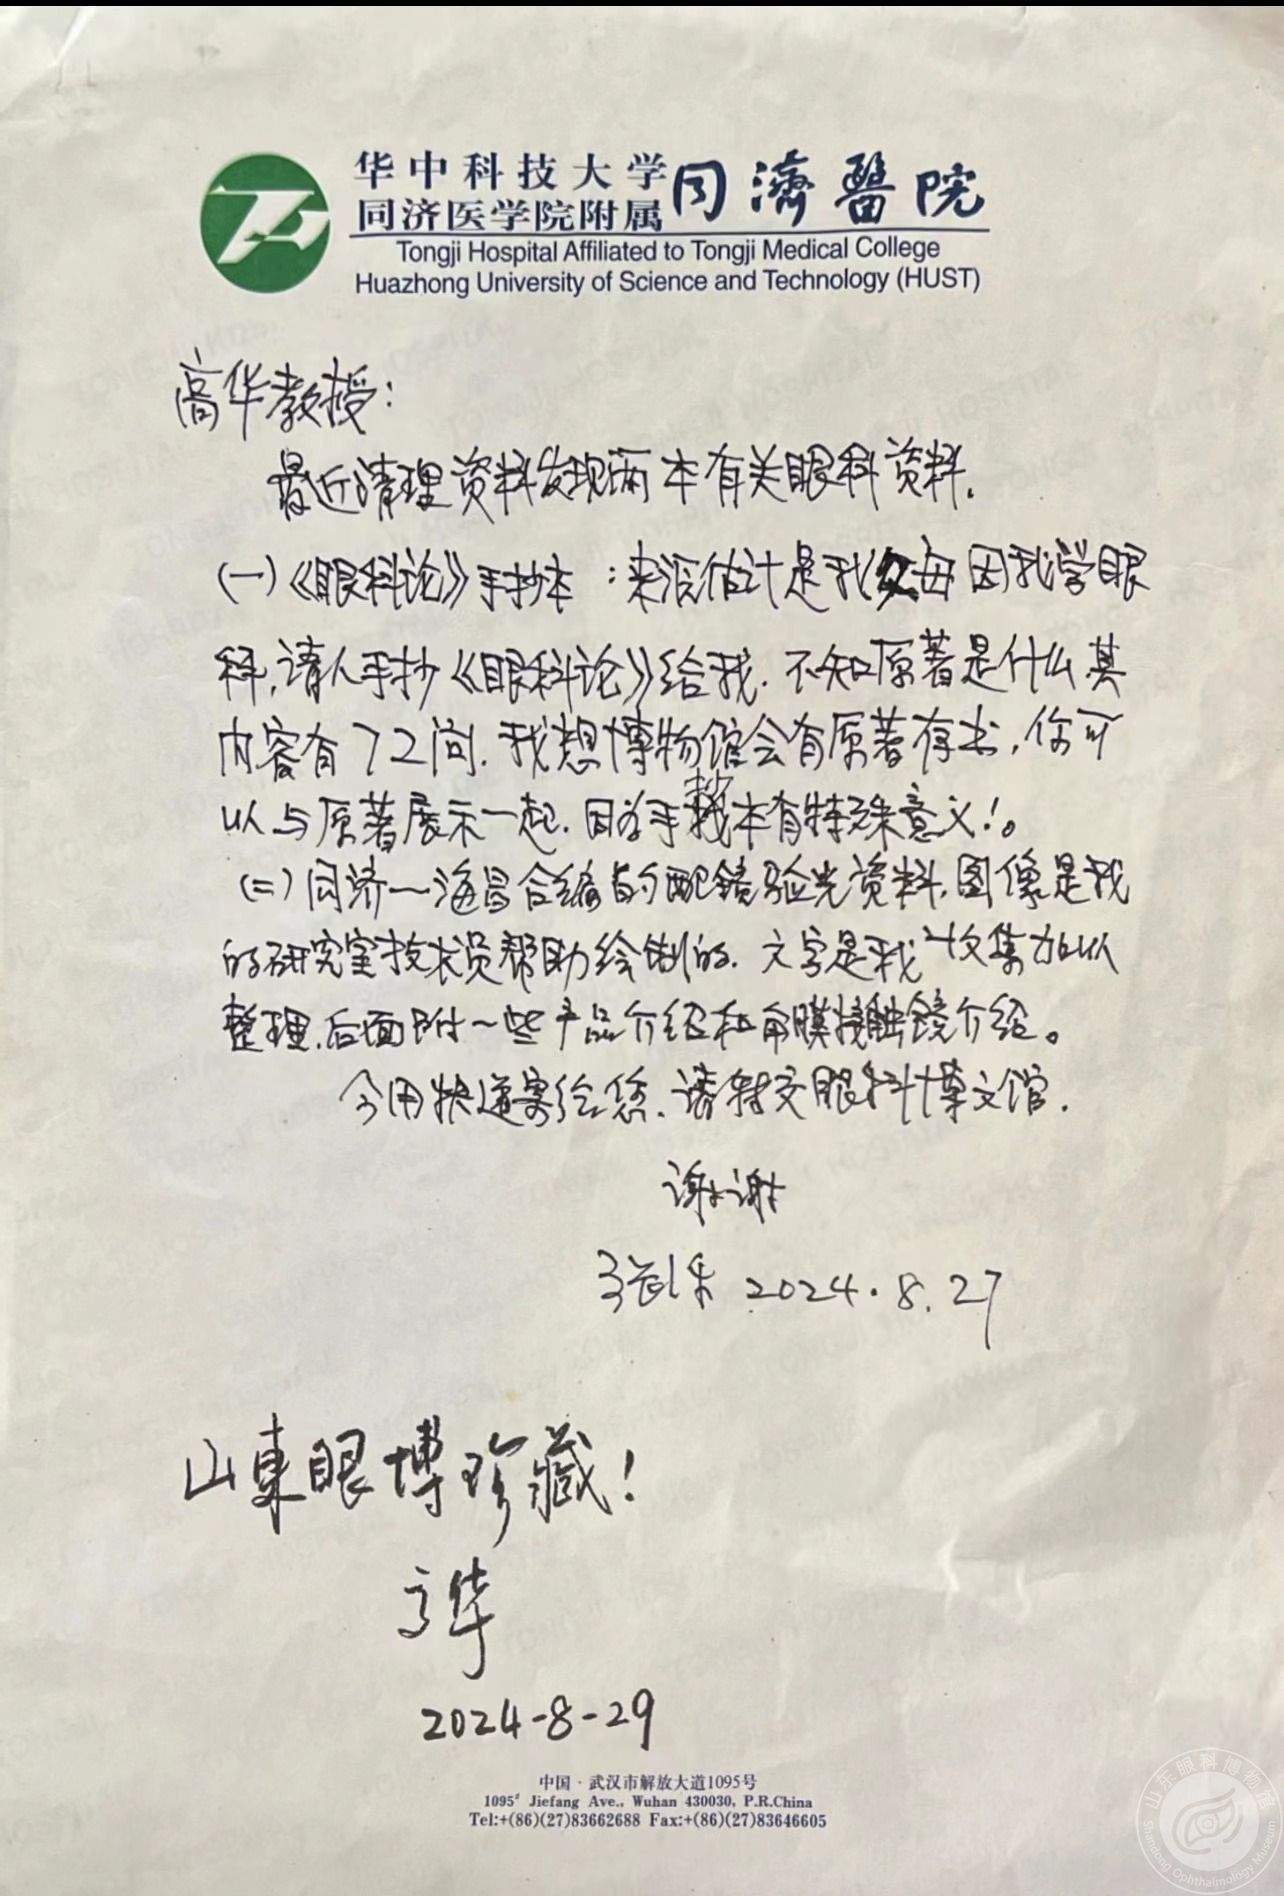 华中科技大学
同济医学院附属
同濟醫院
Tongji Hospital Affiliated to Tongji Medical College
Huazhong University of Science and Technology (HUST)
高华教授：
最近清理资料发现两本有关眼科资料.
(一)《眼科论》手抄本：来源估计是我父母因我学眼
科,请人手抄《眼科论》给我.不知原著是什么其
内容有72问.我想博物馆会有原著存书,你可
以与原著展示一起.因为手抄本有特殊意义！。
(二)同济一海昌合编的配镜验光资料.图像是我
的研究室技术员帮助绘制的.文字是我收集加以
整理.后面附一些产品介绍和角膜接触镜介绍。
今用快递寄给您.请转交眼科博文馆.
谢谢
2024.8.27
山東眼博珍藏！
高华
2024-8-29
中国·武汉市解放大道1095号
1095# Jiefang Ave., Wuhan 430030, P.R.China
Tel:+(86)(27)83662688 Fax:+(86)(27)83646605
山东眼科博物馆
Shandong Ophthalmology Museum